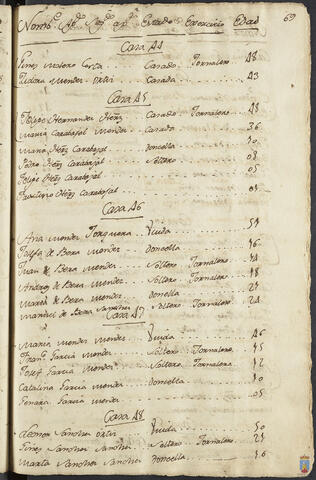 Nomb.s Ap.o Seg.o ap.o Estado Exercicio Edad 69
Casa 44
Gines Costa Casado Jornalero 48
Isidora Mendez Ortiz Casada 43
Casa 45
Felipe Hernandez Casado Jornalero 48
Maria Carabajal Mendez Casada 36
Maria Carabajal doncella 10
Pedro Carabajal Soltero 08
Felipe Carabajal 05
Carabajal 01
Casa 46
Ana Mendez Viuda 54
de Bera Mendez Doncella 16
Juan de Bera Mendez Soltero Jornalero 14
Andres de Bera Mendez Soltero Jornalero 18
Maria de Bera Mendez Donella 21
Manuel de Bera Sanchez Soltero Jornalero 24
Casa 47
Maria Mendez Viuda 46
Fran.co Garcia Mendez Soltero Jornalero 15
Josef Garcia Mendez Soltero Jornalero 12
Catalina Garcia Mendez Doncella 10
Genara Garcia Mendez 05
Casa 48
Leonor Sanchez Ortiz Viuda 50
Gines Sanchez Sanchez Soltero Jornalero 21
Marta Sanchez Sanchez Doncella 16